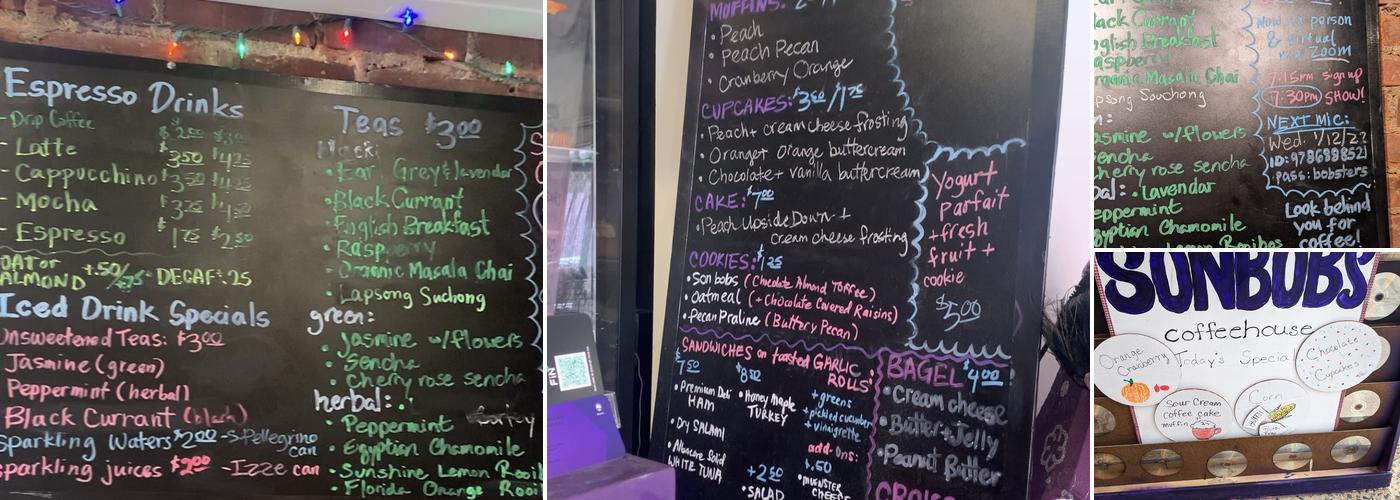 Espresso Drinks
- Drip Coffee $2.00
- Latte $3.50 $4.25
- Cappuccino $3.50 $4.25
- Mocha $3.75
- Espresso $1.75 $2.50
OAT or
ALMOND +.50/.75 DECAF +.25
Iced Drink Specials
Unsweetened Teas: $3.00
Jasmine (green)
Peppermint (herbal)
Black Currant (black)
Sparkling Waters $2.00 - S. Pellegrino
can
Sparkling juices $2.00 - Izze can
Teas $3.00
Black:
• Earl Grey & lavender
• Black Currant
• English Breakfast
• Raspberry
• Organic Masala Chai
• Lapsong Suchong
green:
• Jasmine w/flowers
• Sencha
• Cherry rose sencha
herbal:
• Peppermint
• Egyptian Chamomile
• Sunshine Lemon Rooi
• Florida Orange Rooi
MUFFINS:
• Peach
• Peach Pecan
• Cranberry Orange
CUPCAKES: $3.50/1.75
• Peach + cream cheese frosting
• Orange + Orange buttercream
• Chocolate + vanilla buttercream
CAKE: $7.00
• Peach Upside Down +
cream cheese frosting
COOKIES: $1.25
• Sonbobs (Chocolate Almond Toffee)
• Oatmeal (+ Chocolate Covered Raisins)
• Pecan Praline (Buttery Pecan)
Yogurt
Parfait
+ fresh
fruit +
cookie
$5.00
SANDWICHES on toasted GARLIC
ROLLS
$7.50 $8.50
• Premium Deli
HAM
• Dry SALAMI
• Albacore Solid
WHITE TUNA
• Honey Maple
TURKEY
+2.50
• SALAD
+ greens
+ pickled cucumber
+ vinaigrette
add-ons:
$.50
• MUENSTER
CHEESE
BAGEL $4.00
• Cream cheese
• Butter + Jelly
• Peanut Butter
FIN
Black Currant
English Breakfast
Raspberry
Organic Masala Chai
Lapsong Souchong
Jasmine w/flowers
Sencha
Cherry rose sencha
herbal: • Lavendar
Peppermint
Egyptian Chamomile
Lemon Rooibos
Now in person
& virtual
via ZOOM
7:15pm sign up
7:30pm SHOW!
NEXT MIC:
Wed. 7/12/23
ID: 9786898521
pass: bobsters
Look behind
you for
coffee!
SONBOBS
coffeehouse
Today's Special
Orange
Cranberry
Chocolate
Cupcakes
Sour Cream
coffee cake
muffin
Corn